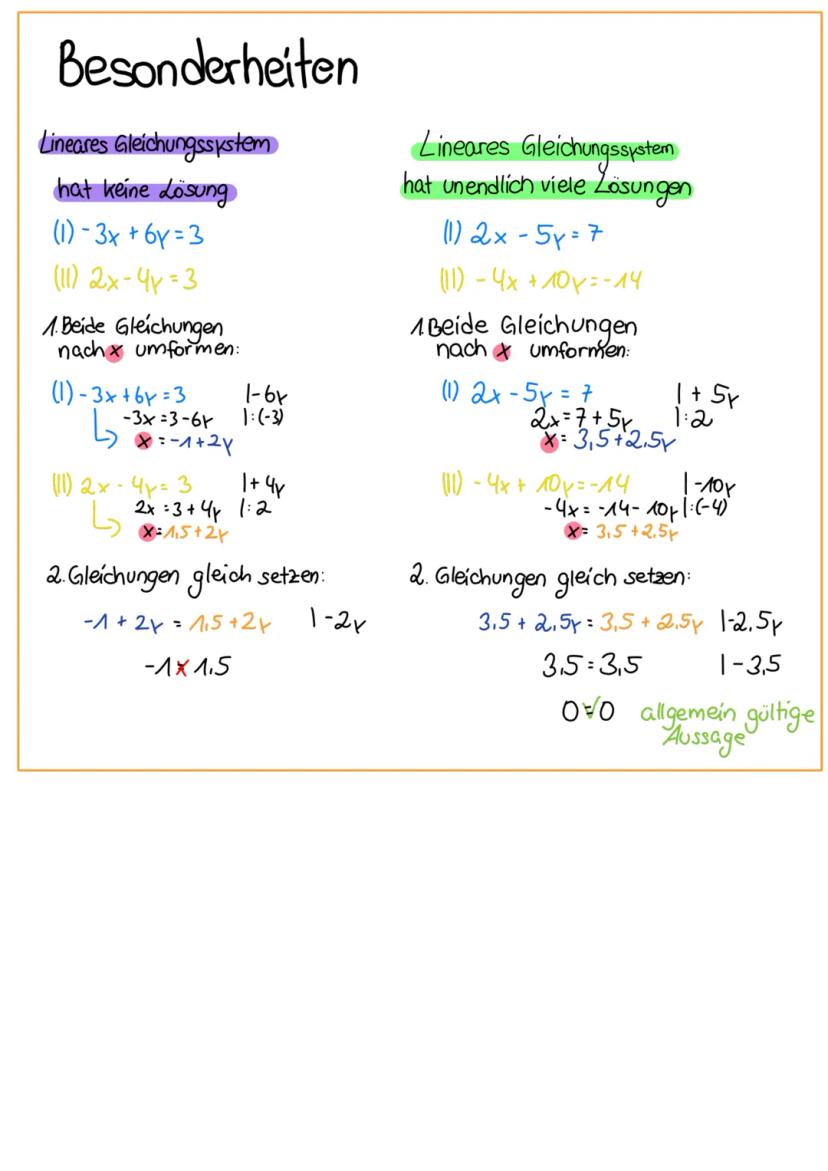 Besonderheiten
Lineares Gleichungssystem
hat keine Lösung
(I) -3x + 6y = 3
(II) 2x - 4y = 3
1. Beide Gleichungen
nach x umformen:
(I) -3x + 6y = 3 |-6y
-3x = 3 - 6y |:(-3)
x = -1 + 2y
(II) 2x - 4y = 3 |+ 4y
2x = 3 + 4y |: 2
x = 1,5 + 2y
2. Gleichungen gleich setzen:
-1 + 2y = 1,5 + 2y |-2y
-1 x 1,5
Lineares Gleichungssystem
hat unendlich viele Lösungen
(I) 2x - 5y = 7
(II) -4x + 10y = -14
1. Beide Gleichungen
nach x umformen:
(I) 2x - 5y = 7 | + 5y
2x = 7 + 5y |: 2
x = 3,5 + 2,5y
(II) -4x + 10y = -14 |-10y
-4x = -14 - 10y |:(-4)
x = 3,5 + 2,5y
2. Gleichungen gleich setzen:
3,5 + 2,5y = 3,5 + 2,5y |-2,5y
3,5 = 3,5 |- 3,5
0 = 0 ✓ allgemein gültige
Aussage